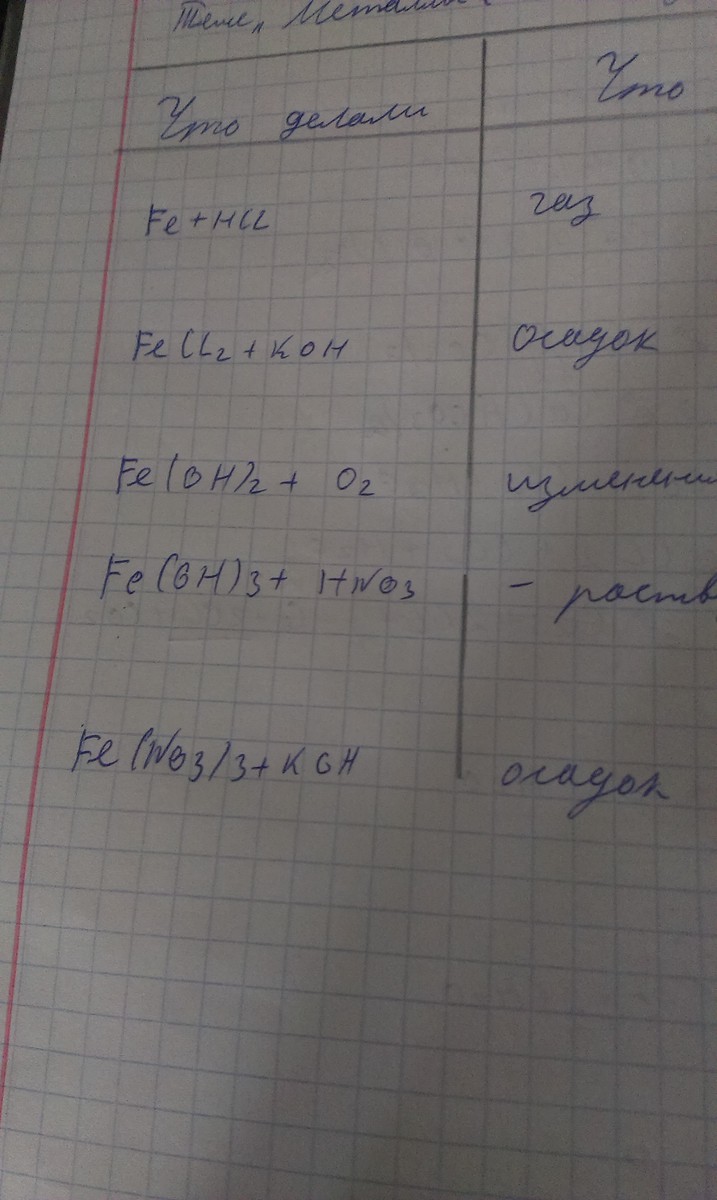 Теме „ Металлы
Что делали Что
Fe + HCl газ
FeCl2 + KOH осадок
Fe(OH)2 + O2 изменени
Fe(OH)3 + HNO3 - раств
Fe(NO3)3 + KOH осадок